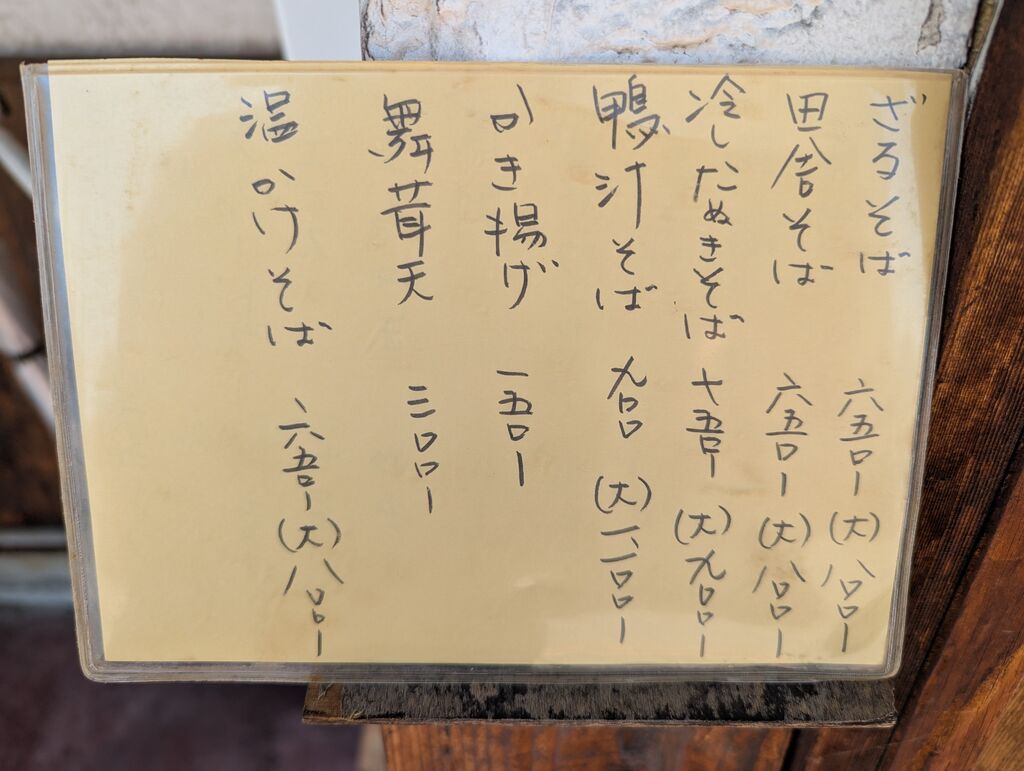 ざるそば 六五〇ー (大) 八〇〇ー
田舎そば 六五〇ー (大) 八〇〇ー
冷したぬきそば 七五〇ー (大) 九〇〇ー
鴨汁そば 九〇〇 (大) 一、一〇〇ー
かき揚げ 一五〇ー
舞茸天 三〇〇ー
温かけそば 六五〇ー (大) 八〇〇ー